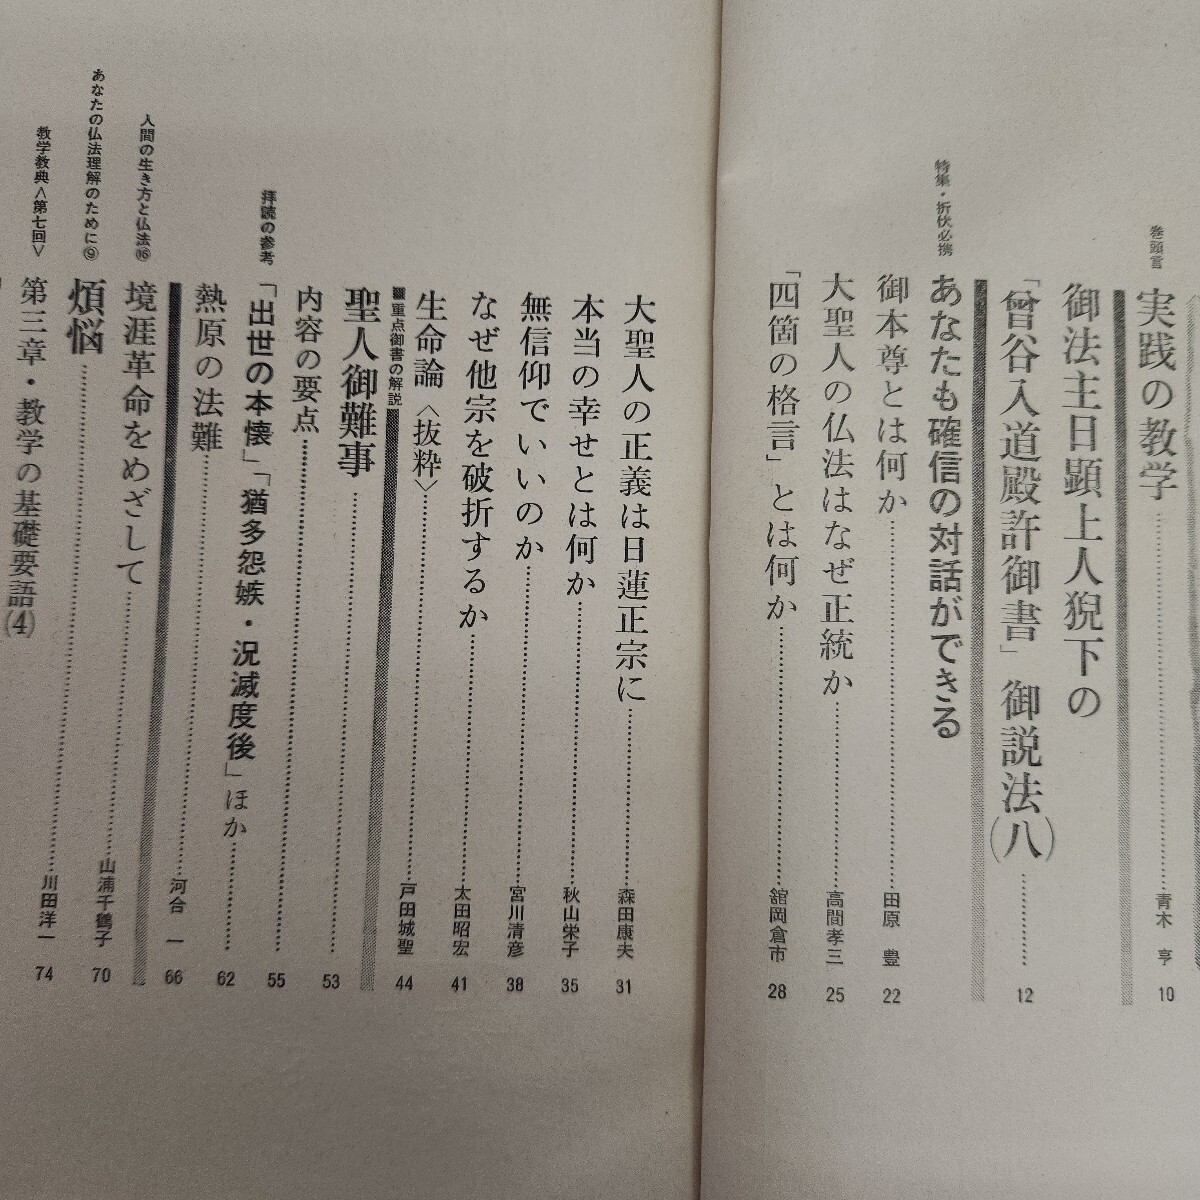 巻頭言
実践の教学……青木 亨 10
御法主日顕上人猊下の
「曾谷入道殿許御書」御説法(八)……12
特集・折伏必携
あなたも確信の対話ができる
御本尊とは何か……田原 豊 22
大聖人の仏法はなぜ正統か……高間孝三 25
「四箇の格言」とは何か……舘岡倉市 28
大聖人の正義は日蓮正宗に……森田康夫 31
本当の幸せとは何か……秋山栄子 35
無信仰でいいのか……宮川清彦 38
なぜ他宗を破折するか……太田昭宏 41
生命論〈抜粋〉……戸田城聖 44
■重点御書の解説
聖人御難事……53
内容の要点……55
拝読の参考
「出世の本懐」「猶多怨嫉・況滅度後」ほか……62
熱原の法難……河合 一 66
人間の生き方と仏法⑯
境涯革命をめざして……山浦千鶴子 70
あなたの仏法理解のために⑨
煩悩……川田洋一 74
教学教典<第七回>
第三章・教学の基礎要語(4)